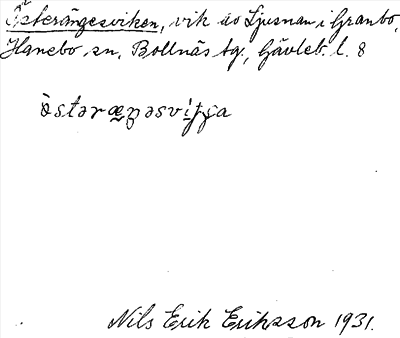 Österängesviken, vik av Ljusnan i Granbo,
Hanebo sn, Bollnäs tg., Gävleb. l. 8
òstəræŋəsvi̱tʃa
Nils Erik Eriksson 1931.